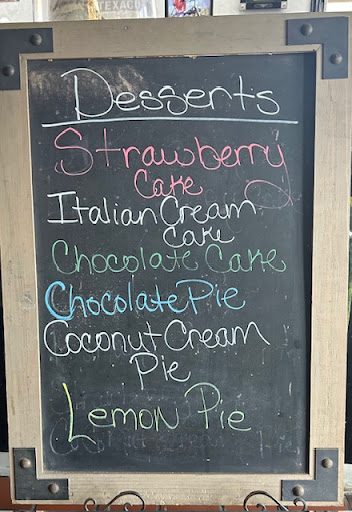 TEXACO
Desserts
Strawberry
Cake
Italian Cream
Cake
Chocolate Cake
Chocolate Pie
Coconut Cream
Pie
Lemon Pie